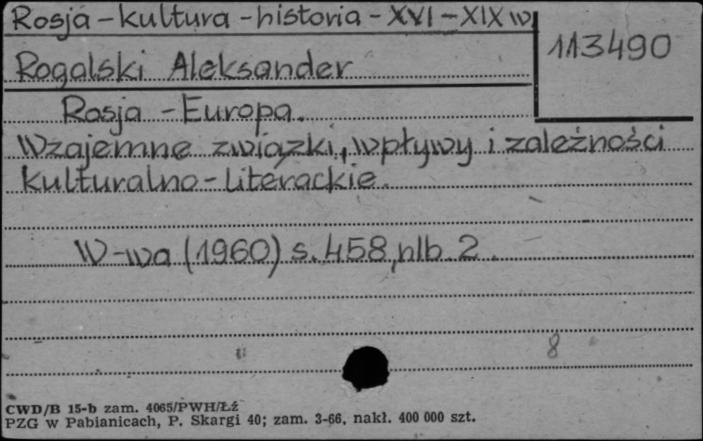 Rosja - kultura - historia - XVI - XIX w
113490
Rogalski Aleksander
Rosja - Europa.
Wzajemne związki, wpływy i zależności
kulturalno-literackie.
W-wa (1960) s. 458, nlb. 2.
8
CWD/B 15-b zam. 4065/PWH/Łź
PZG w Pabianicach, P. Skargi 40; zam. 3-66, nakł. 400 000 szt.